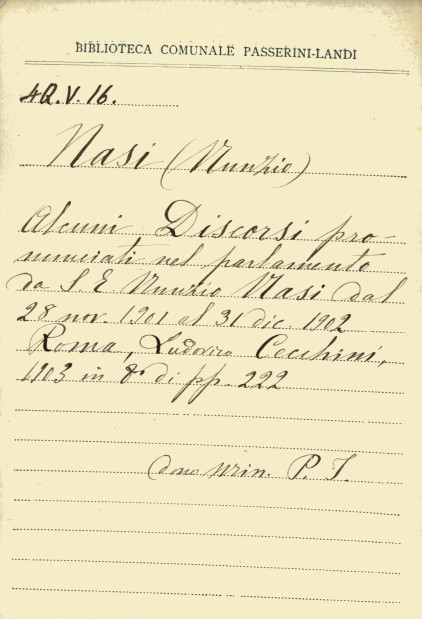 BIBLIOTECA COMUNALE PASSERINI-LANDI
4Q.V.16.
Nasi (Nunzio)
Alcuni Discorsi pro-
nunciati nel parlamento
da S. E. Nunzio Nasi dal
28 nov. 1901 al 31 dic. 1902
Roma, Ludovico Cecchini,
1903 in 8º di pp. 222
dono Min. P. I.